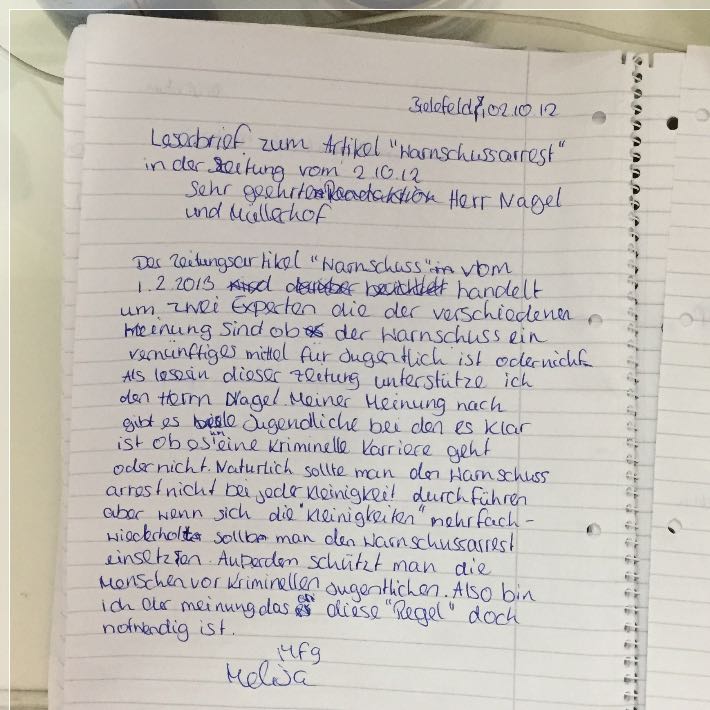 Bielefeld, 02.10.12
Leserbrief zum Artikel "Warnschussarrest"
in der Zeitung vom 2 10.12
Sehr geehrten Readaktion Herr Nagel
und Müllerhof
Der Zeitungsartikel "Warnschuss" in vom
1.2.2013 darüber berichtet handelt
um zwei Experten die der verschiedenen
Meinung sind ob der Warnschuss ein
vernünftiges mittel für Jugentlich ist oder nicht
Als lesein dieser Zeitung unterstütze ich
den Herrn Nagel. Meiner Meinung nach
gibt es viele Jugendliche bei den es klar
ist ob es um eine Kriminelle Karriere geht
oder nicht. Natürlich sollte man den Warnschuss
arrest nicht bei jede kleinigkeit durchführen
aber wenn sich die "kleinigkeiten" mehrfach-
wiederholt sollte man den Warnschussarrest
einsetzten. Außerden schützt man die
Menschen vor Kriminellen Jugentlichen. Also bin
ich der meinung das diese "Regel" doch
notwendig ist.
Mfg